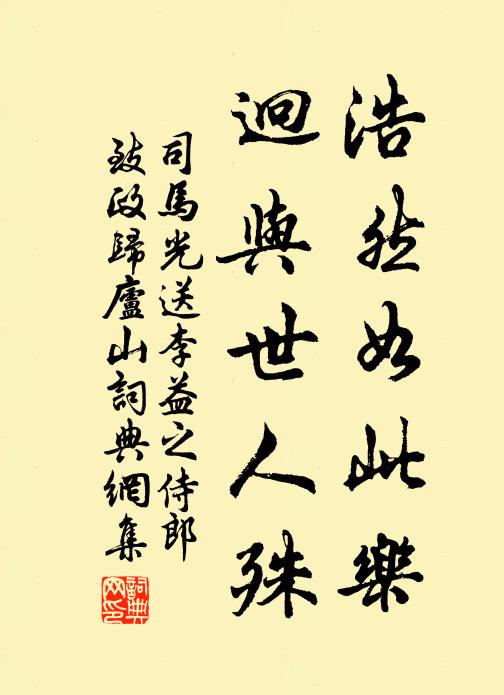 浩然如此樂
迥與世人殊
司馬光送李益之侍郎
致政歸廬山詞典網集
詞典